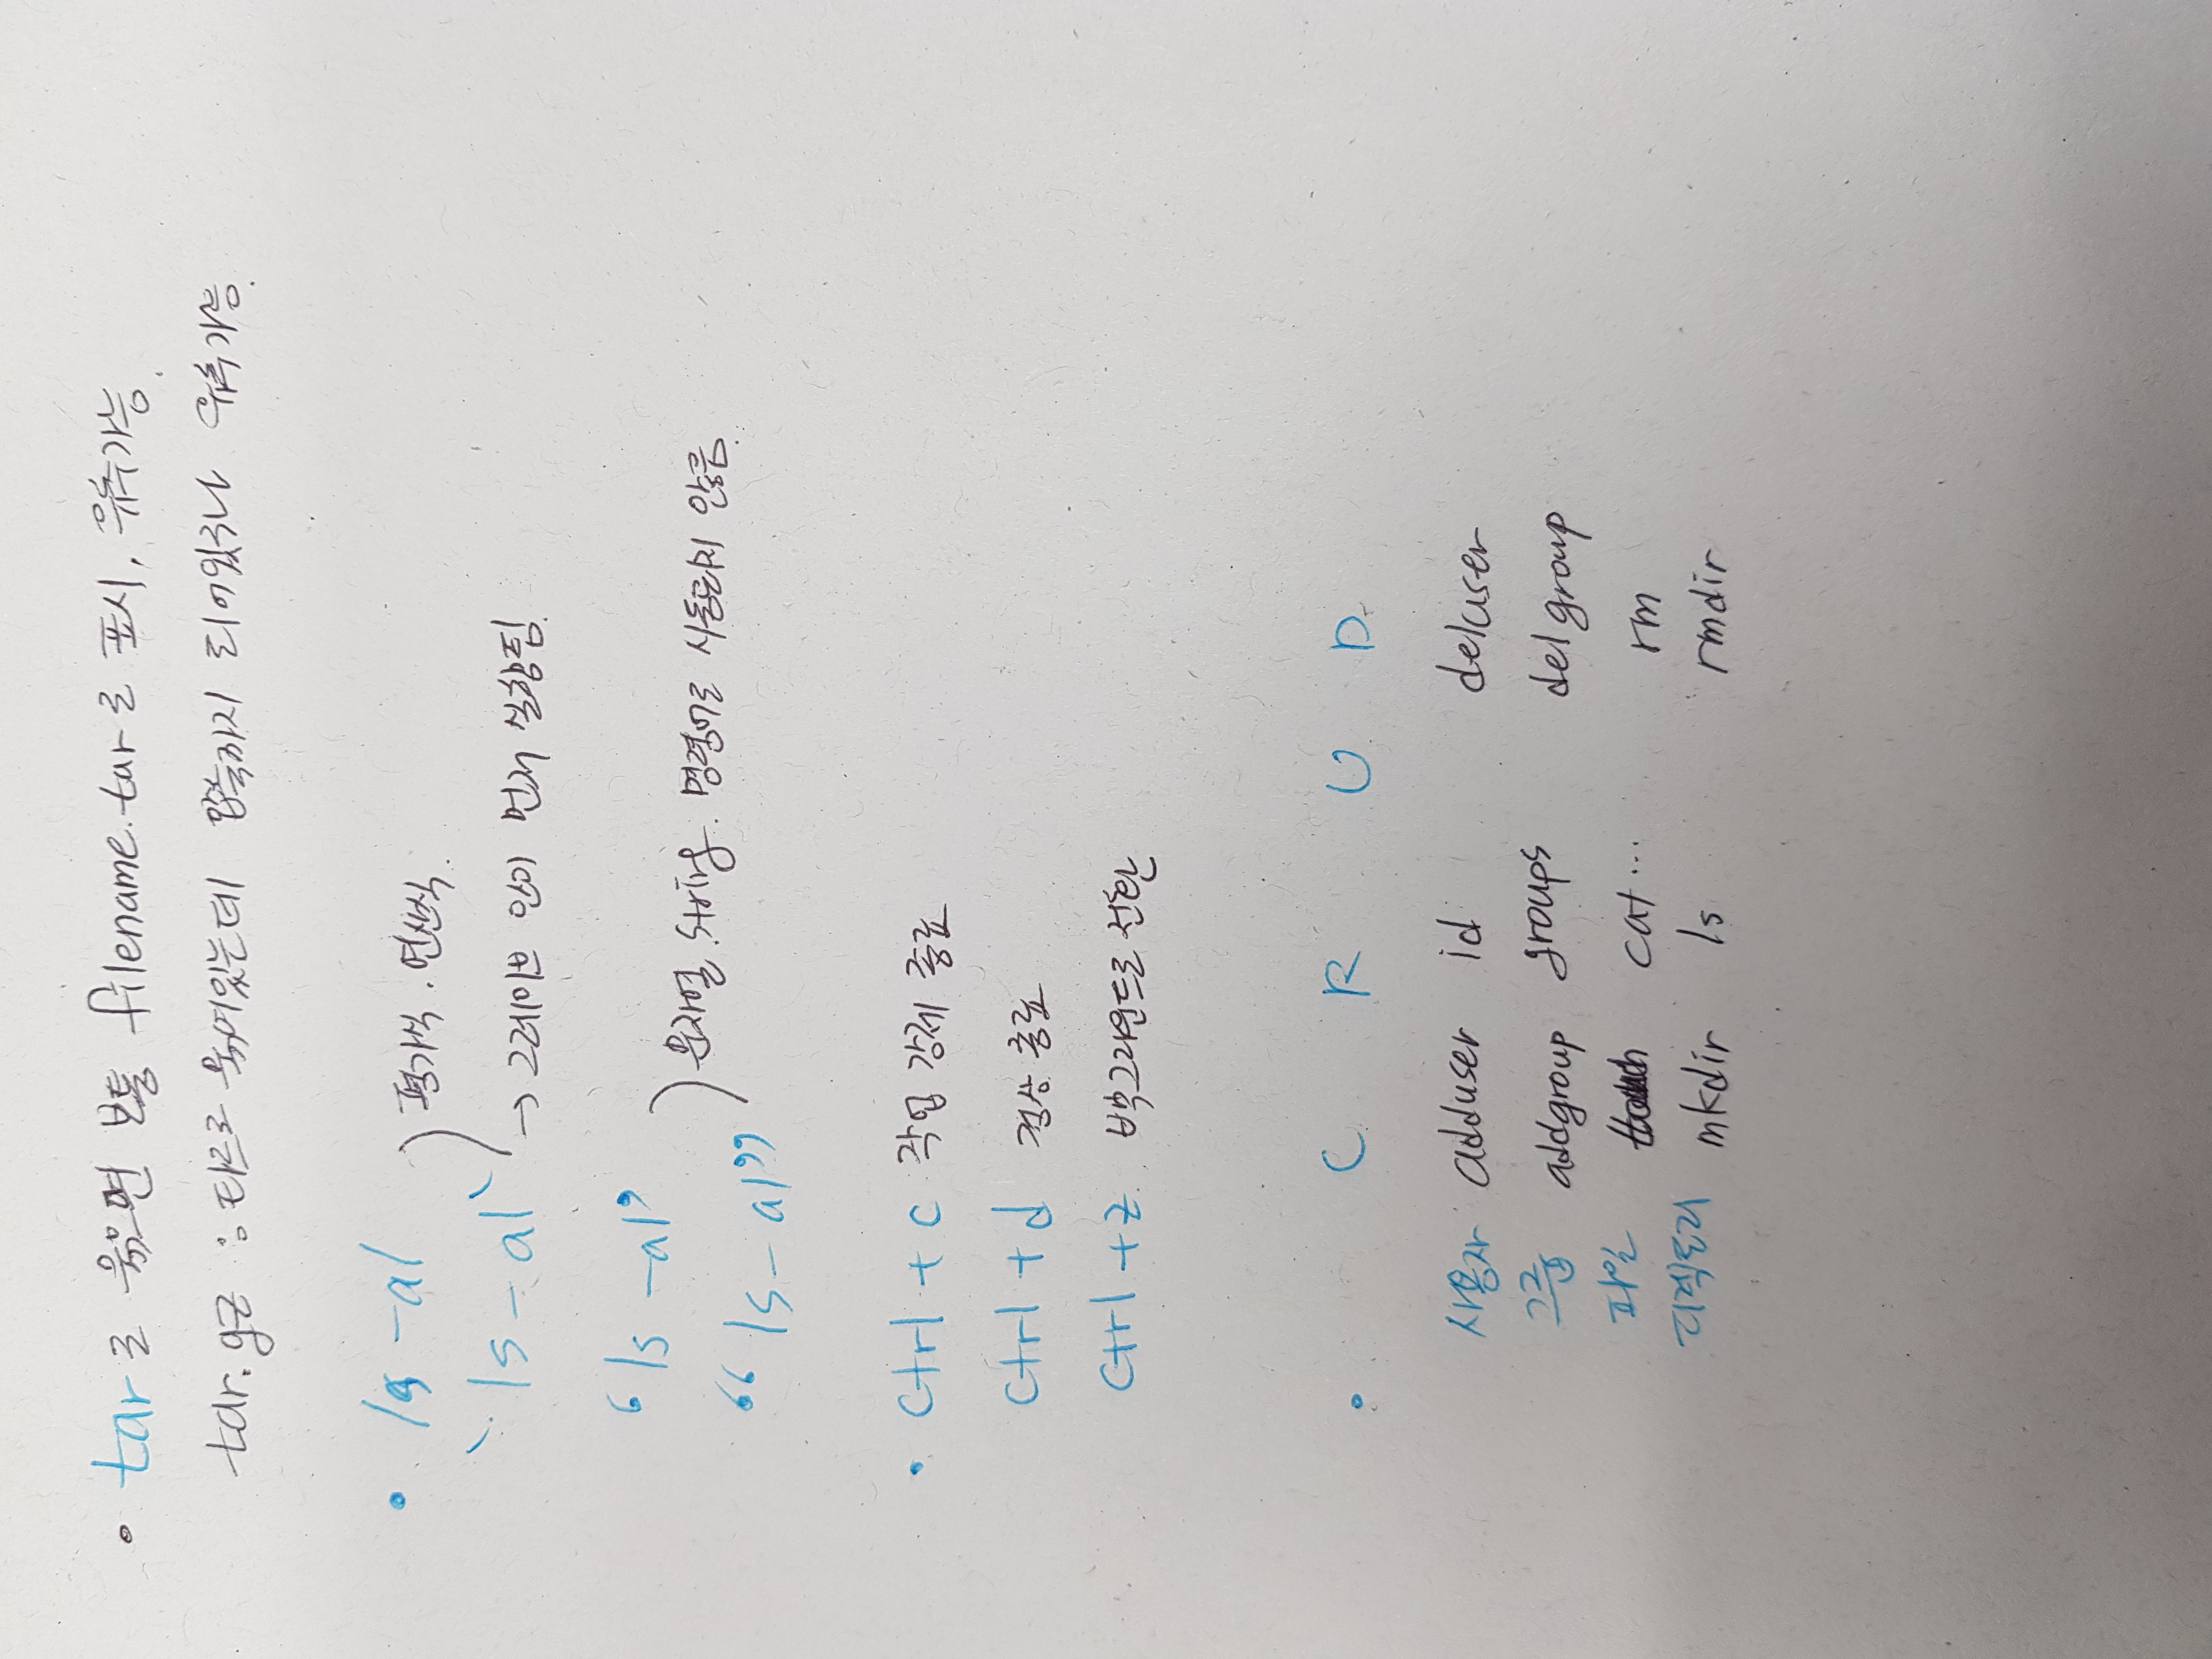 • tar로 묶으면 보통 filename.tar로 표시, 유추가능.
tar.gz : 타르로 묶여있는데 압축까지 되어있구나 유추가능.
• ls -al
`ls -al` ) 평가식. 연산식.
→ 그레이브 안이 먼저 실행됨.
‘ls -al’
“ls -al” ) 문자열 string. 명령어로 사용되지 않음.
• Ctrl + c 작업 강제 종료
Ctrl + d 정상 종료
Ctrl + z 백그라운드로 전환
• C R U D
사용자 adduser id deluser
그룹 addgroup groups delgroup
파일 touch cat... rm
디렉토리 mkdir ls rmdir